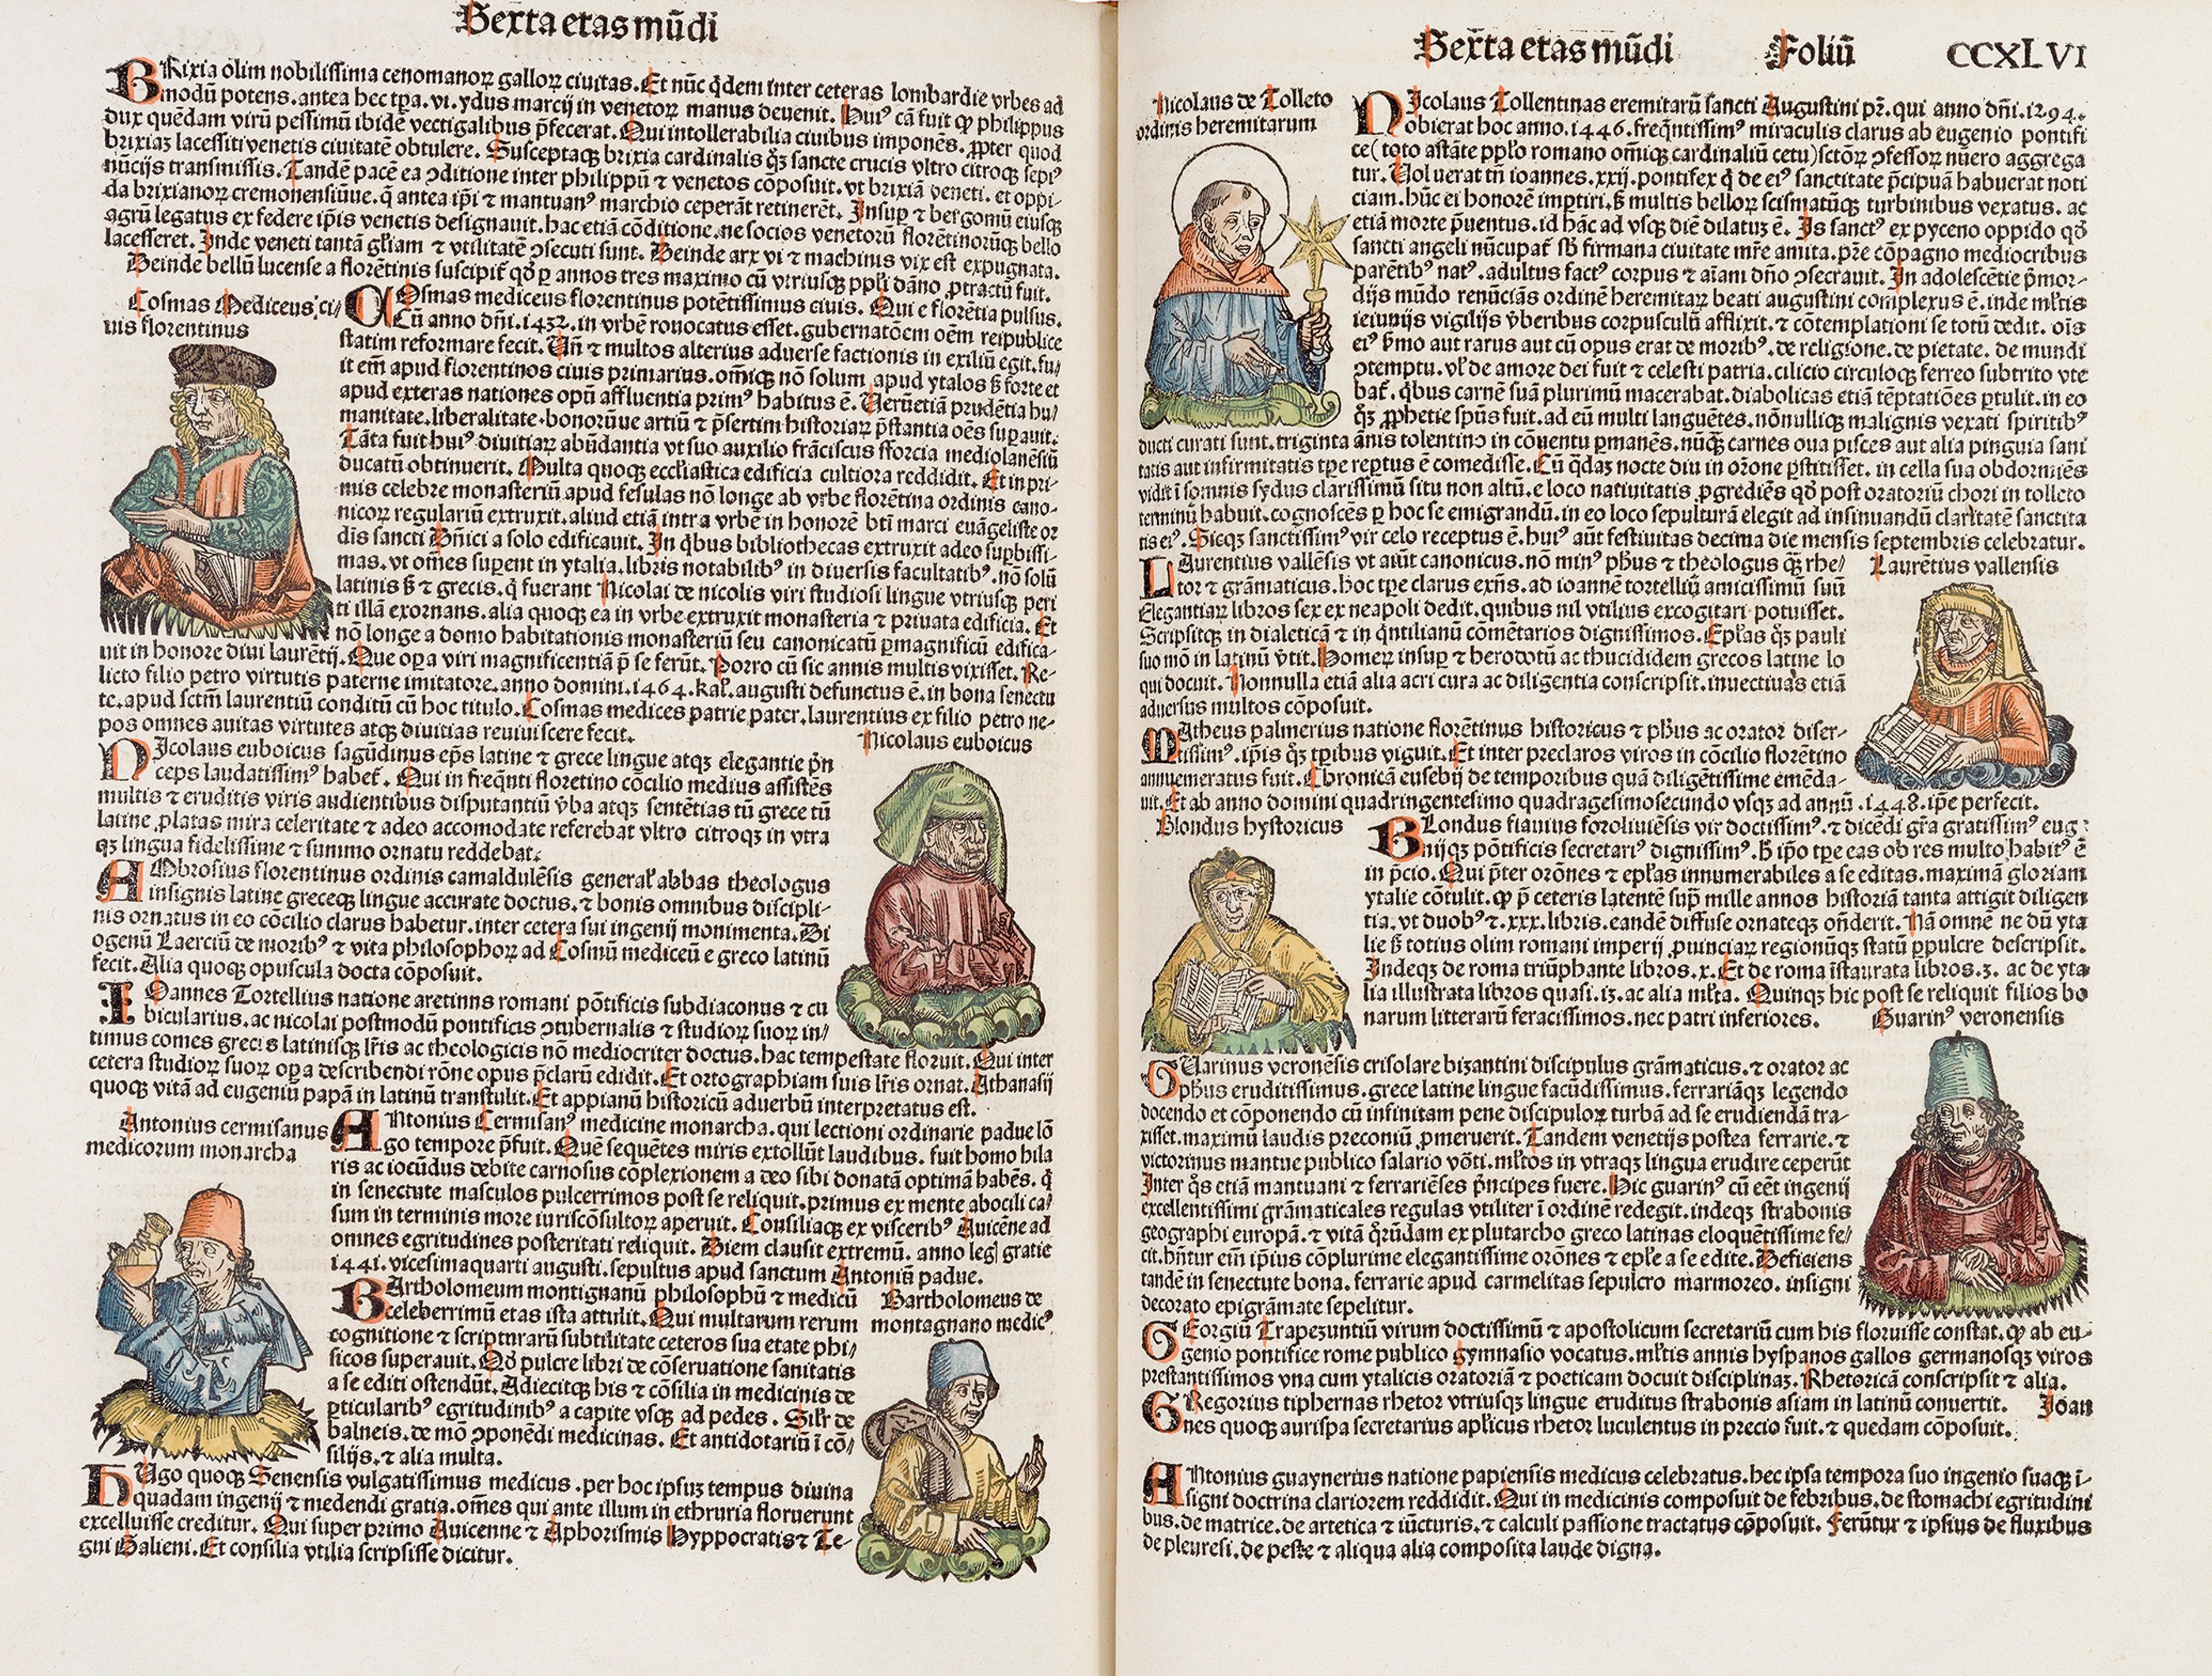 Sexta etas mūdi
BRixia olim nobilissima cenomanoꝝ galloꝝ ciuitas. Et nūc q̇dem inter ceteras lombardie vrbes ad
modū potens. antea hec tꝑa. vi. ydus marcij in venetoꝝ manus deuenit. Huiꝰ cā fuit ꝙ philippus
dux quēdam virū pessimū ibidē vectigalibus p̄fecerat. Qui intollerabilia ciuibus imponēs. ꝓpter quod
brixiaȝ lacessiti venetis ciuitatē obtulere. Susceptaqȝ brixia cardinalis qȝ̄ sancte crucis vltro citroqȝ sepiꝰ
nūcijs transmissis. Tandē pacē ea ꝯditione inter philippū ⁊ venetos cōposuit. vt brixiā veneti. et oppi-
da brixianoꝝ cremonensiūue. q̄ antea ip̄i ⁊ mantuanꝰ marchio ceperāt retinerēt. Insuꝑ ⁊ bergomū eiusqȝ
agrū legatus ex federe ip̄is venetis designauit. hac etiā cōditione. ne socios venetorū florētinorūqȝ bello
lacesseret. Inde veneti tantā gl̄iam ⁊ vtilitatē ꝯsecuti sunt. Deinde arx vi ⁊ machinis vix est expugnata.
Deinde bellū lucense a florētinis suscipit̄ qd̄ ꝑ annos tres maximo cū viriusqȝ pp̄li dāno ꝓtractū fuit.
Cosmas Mediceus ci/
uis florentinus
COsmas mediceus florentinus potētissimus ciuis. Qui e florētia pulsus.
Cū anno dn̄i. 1432. in vrbē rouocatus esset. gubernatōem oēm reipublice
statim reformare fecit. Un̄ ⁊ multos alterius aduerse factionis in exiliū egit. fu/
it em̄ apud florentinos ciuis primarius. om̄iqȝ nō solum apud ytalos s̄ forte et
apud exteras nationes opū affluentia primꝰ habitus ē. Uerūetiā prudētia hu/
manitate. liberalitate. bonorūue artiū ⁊ p̄sertim historiaꝝ p̄stantia oēs suꝑauit.
Tāta fuit huiꝰ diuitiaꝝ abūdantia vt suo auxilio frāciscus sforcia mediolanēsiū
ducatū obtinuerit. Multa quoqȝ eccl̄iastica edificia cultiora reddidit. Et in pri-
mis celebre monasteriū apud fesulas nō longe ab vrbe florētina ordinis cano-
nicoꝝ regulariū extruxit. aliud etiā intra vrbē in honorē bt̄i marci euāgeliste or
dis sancti Dn̄ici a solo edificauit. In q̇bus bibliothecas extruxit adeo suꝑbissi-
mas. vt om̄es suꝑent in ytalia. libris notabilibꝰ in diuersis facultatibꝰ. nō solū
latinis s̄ ⁊ grecis. q̄ fuerant Nicolai de nicolis viri studiosi lingue vtriusqȝ peri
ti illā exornans. alia quoqȝ ea in vrbe extruxit monasteria ⁊ priuata edificia. Et
nō longe a domo habitationis monasteriū seu canonicatū ꝑmagnificū edifica-
uit in honore diui laurētij. Que oꝑa viri magnificentiā p̄ se ferūt. Porro cū sic annis multis vixisset. Re-
licto filio petro virtutis paterne imitatore. anno domini. 1464. kal̄. augusti defunctus ē. in bona senectu
te. apud sctm̄ laurentiū conditū cū hoc titulo. Cosmas medices patrie pater. laurentius ex filio petro ne-
pos omnes auitas virtutes atqȝ diuitias reuiuiscere fecit.
Nicolaus euboicus
NIcolaus euboicus sagūdinus ep̄s latine ⁊ grece lingue atqȝ elegantie p̄n
ceps laudatissimꝰ habet̄. Qui in freq̄nti floretino cōcilio medius assistēs
multis ⁊ eruditis viris audientibus disputantiū v̄ba atqȝ sentētias tū grece tū
latine ꝓlatas mira celeritate ⁊ adeo accomodate referebat vltro citroqȝ in vtra
qȝ lingua fidelissime ⁊ summo ornatu reddebat.
AMbrosius florentinus ordinis camaldulēsis general̄ abbas theologus
insignis latine greceqȝ lingue accurate doctus. ⁊ bonis omnibus discipli-
nis ornatus in eo cōcilio clarus habetur. inter cetera sui ingenij monimenta. Di
ogenū Laerciū de moribꝰ ⁊ vita philosophoꝝ ad Cosmū mediceū e greco latinū
fecit. Alia quoqȝ opuscula docta cōposuit.
IOannes Tortellius natione aretinns romani pōtificis subdiaconus ⁊ cu
bicularius. ac nicolai postmodū pontificis ꝯtubernalis ⁊ studioꝝ suoꝝ in/
timus comes grecis latinisqȝ lr̄is ac theologicis nō mediocriter doctus. hac tempestate floruit. Qui inter
cetera studioꝝ suoꝝ oꝑa describendi rōne opus p̄clarū edidit. Et ortographiam suis lr̄is ornat. Athanasij
quoqȝ vitā ad eugeniū papā in latinū transtulit. Et appianū historicū aduerbū interpretatus est.
Antonius cermisanus
medicorum monarcha
ANtonius Cermisanꝰ medicine monarcha. qui lectioni ordinarie padue lō
go tempore p̄fuit. Quē sequētes miris extollūt laudibus. fuit homo hila
ris ac iocūdus debite carnosus cōplexionem a deo sibi donatā optimā habēs. q̄
in senectute masculos pulcerrimos post se reliquit. primus ex mente abocili ca/
sum in terminis more iuriscōsultoꝝ aperuit. Consiliaqȝ ex visceribꝰ Auicēne ad
omnes egritudines posteritati reliquit. Diem clausit extremū. anno legl gratie
1441. vicesimaquarti augusti. sepultus apud sanctum Antoniū padue.
BArtholomeum montignanū philosophū ⁊ medicū
celeberrimū etas ista attulit. Qui multarum rerum
cognitione ⁊ scripturarū subtilitate ceteros sua etate phi/
sicos superauit. Qd̄ pulcre libri de cōseruatione sanitatis
a se editi ostendūt. Adiecitqȝ his ⁊ cōsilia in medicinis de
ꝑticularibꝰ egritudinibꝰ a capite vsqȝ ad pedes. Silr̄ de
balneis. de mō ꝯponēdi medicinas. Et antidotariū ī cō/
silijs. ⁊ alia multa.
Bartholomeus de
montagnano medicꝰ
HUgo quoqȝ Senensis vulgatissimus medicus. per hoc ipsuȝ tempus diuina
quadam ingenij ⁊ medendi gratia. om̄es qui ante illum in ethruria floruerunt
excelluisse creditur. Qui super primo Auicenne ⁊ Aphorismis Hyppocratis ⁊ Te-
gni Galieni. Et consilia vtilia scripsisse dicitur.
Sexta etas mūdi Foliū CCXLVI
Nicolaus de Tolleto
ordinis heremitarum
NIcolaus Tollentinas eremitarū sancti Augustini pr̄. qui anno dn̄i. 1294.
obierat hoc anno. 1446. freq̄ntissimꝰ miraculis clarus ab eugenio pontifi
ce (toto astāte pp̄lo romano om̄iqȝ cardinaliū cetu) sctōꝝ ꝯfessoꝝ nūero aggrega
tur. Uoluerat tn̄ ioannes. xxij. pontifex q̇ de eiꝰ sanctitate p̄cipuā habuerat noti
ciam. hūc ei honorē imꝑtiri. s̄ multis belloꝝ scismatūqȝ turbinibus vexatus. ac
etiā morte p̄uentus. id hāc ad vsqȝ diē dilatuȝ ē. Is sanctꝰ ex pyceno oppido qd̄
sancti angeli nūcupat̄ sb̄ firmana ciuitate mr̄e amita. pr̄e cōpagno mediocribus
parētibꝰ natꝰ. adultus factꝰ corpus ⁊ aīam dn̄o ꝯsecrauit. In adolescētie p̄mor-
dijs mūdo renūciās ordinē heremitaꝝ beati augustini complexus ē. inde ml̄tis
ieiunijs vigilijs v̄beribus corpusculū afflixit. ⁊ cōtemplationi se totū dedit. oīs
eiꝰ ṡmo aut rarus aut cū opus erat de moribꝰ. de religione. de pietate. de mundi
ꝯtemptu. vl̄ de amore dei fuit ⁊ celesti patria. cilicio circuloqȝ ferreo subtrito vte
bat̄. q̇bus carnē suā plurimū macerabat. diabolicas etiā tēptatiōes ꝑtulit. in eo
qȝ̄ ꝓphetie spūs fuit. ad eū multi languētes. nōnulliqȝ malignis vexati spiritibꝰ
ducti curati sunt. triginta ānis tolentino in cōuentu ꝑmanēs. nūqȝ̄ carnes oua pisces aut alia pinguia sani
tatis aut infirmitatis tꝑe reꝑtus ē comedisse. Cū q̄daȝ nocte diu in orōne ꝑstitisset. in cella sua obdormiēs
vidit ī somnis sydus clarissimū situ non altū. e loco natiuitatis ꝓgrediēs qd̄ post oratoriū chori in tolleto
terminū habuit. cognoscēs ꝑ hoc se emigrandū. in eo loco sepulturā elegit ad insinuandū claritatē sanctita
tis eiꝰ. Sicqȝ sanctissimꝰ vir celo receptus ē. huiꝰ aūt festiuitas decima die mensis septembris celebratur.
LAurentius vallēsis vt aiūt canonicus. nō minꝰ ph̄us ⁊ theologus qȝ̄ rhe/
tor ⁊ grāmaticus. hoc tꝑe clarus exn̄s. ad ioannē tortelliū amicissimū suū
Elegantiaꝝ libros sex ex neapoli dedit. quibus nil vtilius excogitari potuisset.
Scripsitqȝ in dialeticā ⁊ in q̄ntilianū cōmētarios dignissimos. Epl̄as qȝ̄ pauli
suo mō in latinū v̄tit. Homeꝝ insuꝑ ⁊ herodotū ac thucididem grecos latine lo
qui docuit. Nonnulla etiā alia acri cura ac diligentia conscripsit. inuectiuas etiā
aduersus multos cōposuit.
Laurētius vallensis
MAtheus palmerius natione florētinus historicus ⁊ ph̄us ac orator diser-
tissimꝰ. ip̄is qȝ̄ tꝑibus viguit. Et inter preclaros viros in cōcilio florētino
annumeratus fuit. Chronicā eusebij de temporibus quā diligētissime emēda-
uit. Et ab anno domini quadringentesimo quadragesimosecundo vsqȝ ad annū. 1448. ip̄e perfecit.
Blondus hystoricus
BLondus flauius foroliuiēsis vir doctissimꝰ. ⁊ dicēdi gr̄a gratissimꝰ eug:
nijqȝ pōtificis secretariꝰ dignissimꝰ. h̄ ip̄o tꝑe eas ob res multo habitꝰ ē
in p̄cio. Qui p̄ter orōnes ⁊ epl̄as innumerabiles a se editas. maximā gloriam
ytalie cōtulit. ꝙ p̄ ceteris latentē supͣ mille annos historiā tanta attigit diligen
tia. vt duobꝰ ⁊. xxx. libris. eandē diffuse ornateqȝ on̄derit. Nā omnē ne dū yta
lie s̄ totius olim romani imperij ꝓuinciaꝝ regionūqȝ statū ꝑpulcre descripsit.
Indeqȝ de roma triūphante libros. x. Et de roma īstaurata libros. 3. ac de yta
lia illustrata libros quasi. 13. ac alia ml̄ta. Quinqȝ hic post se reliquit filios bo
narum litterarū feracissimos. nec patri inferiores.
Guarinꝰ veronensis
GUarinus veronēsis crisolare bizantini discipulus grāmaticus. ⁊ orator ac
ph̄us eruditissimus. grece latine lingue facūdissimus. ferrariāqȝ legendo
docendo et cōponendo cū infinitam pene discipuloꝝ turbā ad se erudiendā tra-
xisset. maximū laudis preconiū ꝓmeruerit. Tandem venetijs postea ferrarie. ⁊
victorinus mantue publico salario vōti. ml̄tos in vtraqȝ lingua erudire ceperūt
Inter q̊s etiā mantuani ⁊ ferrariēses p̄ncipes fuere. Hic guarinꝰ cū eēt ingenij
excellentissimi grāmaticales regulas vtiliter ī ordinē redegit. indeqȝ strabonis
geographi europā. ⁊ vitā q̊rūdam ex plutarcho greco latinas eloquētissime fe/
cit. hn̄tur em̄ ip̄ius cōplurime elegantissime orōnes ⁊ epl̄e a se edite. Deficiens
tandē in senectute bona. ferrarie apud carmelitas sepulcro marmoreo. insigni
decorato epigrāmate sepelitur.
GEorgiū Trapezuntiū virum doctissimū ⁊ apostolicum secretariū cum his floruisse constat. ꝙ ab eu-
genio pontifice rome publico gymnasio vocatus. ml̄tis annis hyspanos gallos germanosqȝ viros
prestantissimos vna cum ytalicis oratoriā ⁊ poeticam docuit disciplinaȝ. Rhetoricā conscripsit ⁊ alia.
GRegorius tiphernas rhetor vtriusqȝ lingue eruditus strabonis asiam in latinū conuertit. Joan
nes quoqȝ aurispa secretarius apl̄icus rhetor luculentus in precio fuit. ⁊ quedam cōposuit.
ANtonius guaynerius natione papiensis medicus celebratus. hec ipsa tempora suo ingenio suaqȝ ī-
signi doctrina clariorem reddidit. Qui in medicinis composuit de febribus. de stomachi egritudini
bus. de matrice. de artetica ⁊ iūcturis. ⁊ calculi passione tractatus cōposuit. Ferūtur ⁊ ipsius de fluxibus
de pleuresi. de peste ⁊ aliqua alia composita laude digna.